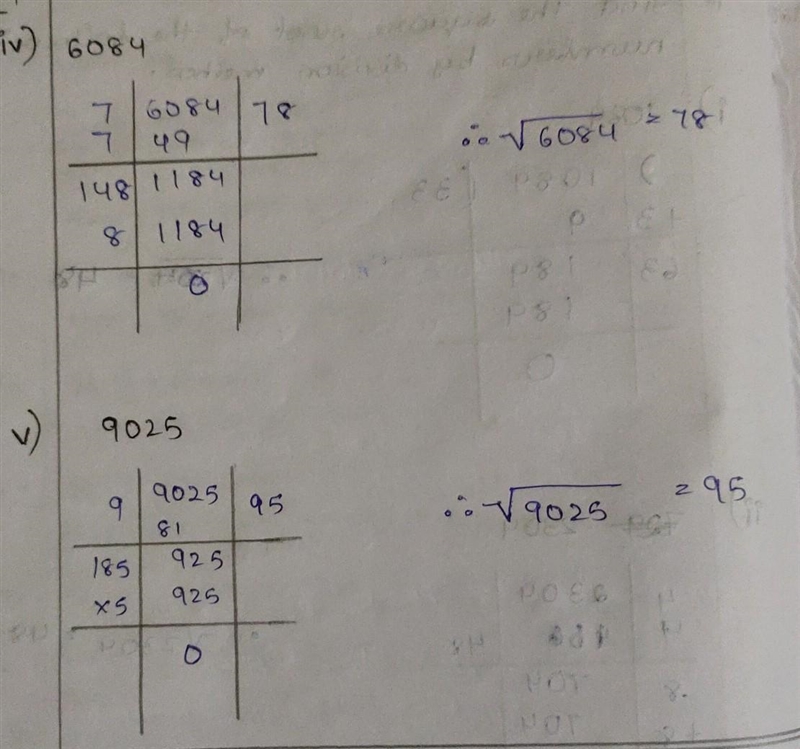 iv) 6084
7 | 6084 | 78
7 | 49
148 | 1184
8 | 1184
0
∴ √6084 = 78
v) 9025
9 | 9025 | 95
81
185 | 925
×5 | 925
0
∴ √9025 = 95